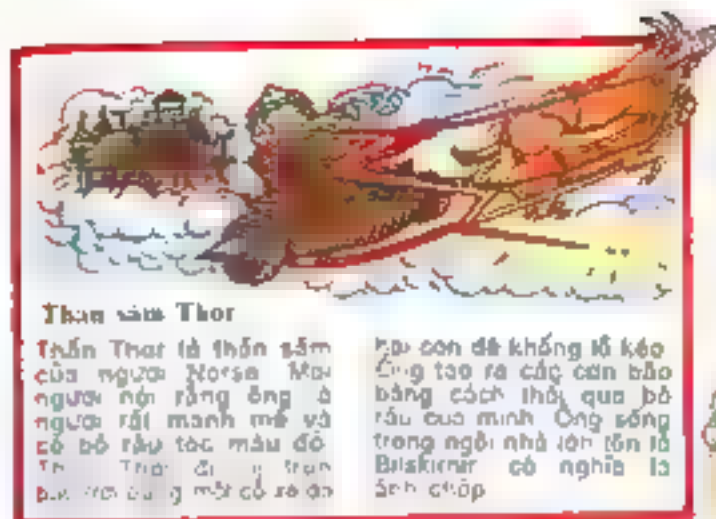 Thần sấm Thor
Thần Thor là thần sấm
của người Norse Mọi
người nói rằng ông là
người rất mạnh mẽ và
có bộ râu tóc màu đỏ
Thor đi trên
bằng một cỗ xe do
hai con dê khổng lồ kéo
Ông tạo ra các cơn bão
bằng cách thổi qua bộ
râu của mình Ông sống
trong ngôi nhà lớn tên là
Bilskirnir có nghĩa là
ánh chớp